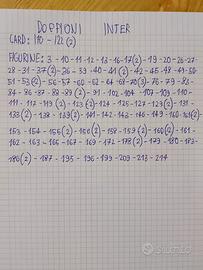 DOPPIONI INTER
CARD: 110 - 121(2)
FIGURINE: 3 - 10 - 11 - 12 - 13 - 16 - 17(2) - 19 - 20 - 26 - 27 -
28 - 31 - 37(2) - 36 - 39 - 40 - 41(2) - 42 - 45 - 48 - 49 - 50
51 - 53(2) - 56 - 57 - 60 - 62 - 64 - 68 - 70(3) - 76 - 79 - 83 -
84 - 86 - 87 - 88 - 89(2) - 91 - 102 - 104 - 107 - 109 - 110 -
111 - 117 - 119(2) - 123(2) - 124 - 125 - 127 - 129(2) - 131 -
133(2) - 138 - 139(2) - 141 - 142 - 143 - 146 - 149 - 160 - 161(2) -
153 - 154 - 156(2) - 150(2) - 158 - 159(2) - 160(2) - 161 -
162 - 163 - 165 - 167 - 169 - 172 - 178(2) - 179 - 180 - 183 -
186(2) - 187 - 195 - 196 - 199 - 209 - 213 - 214
Subito.it